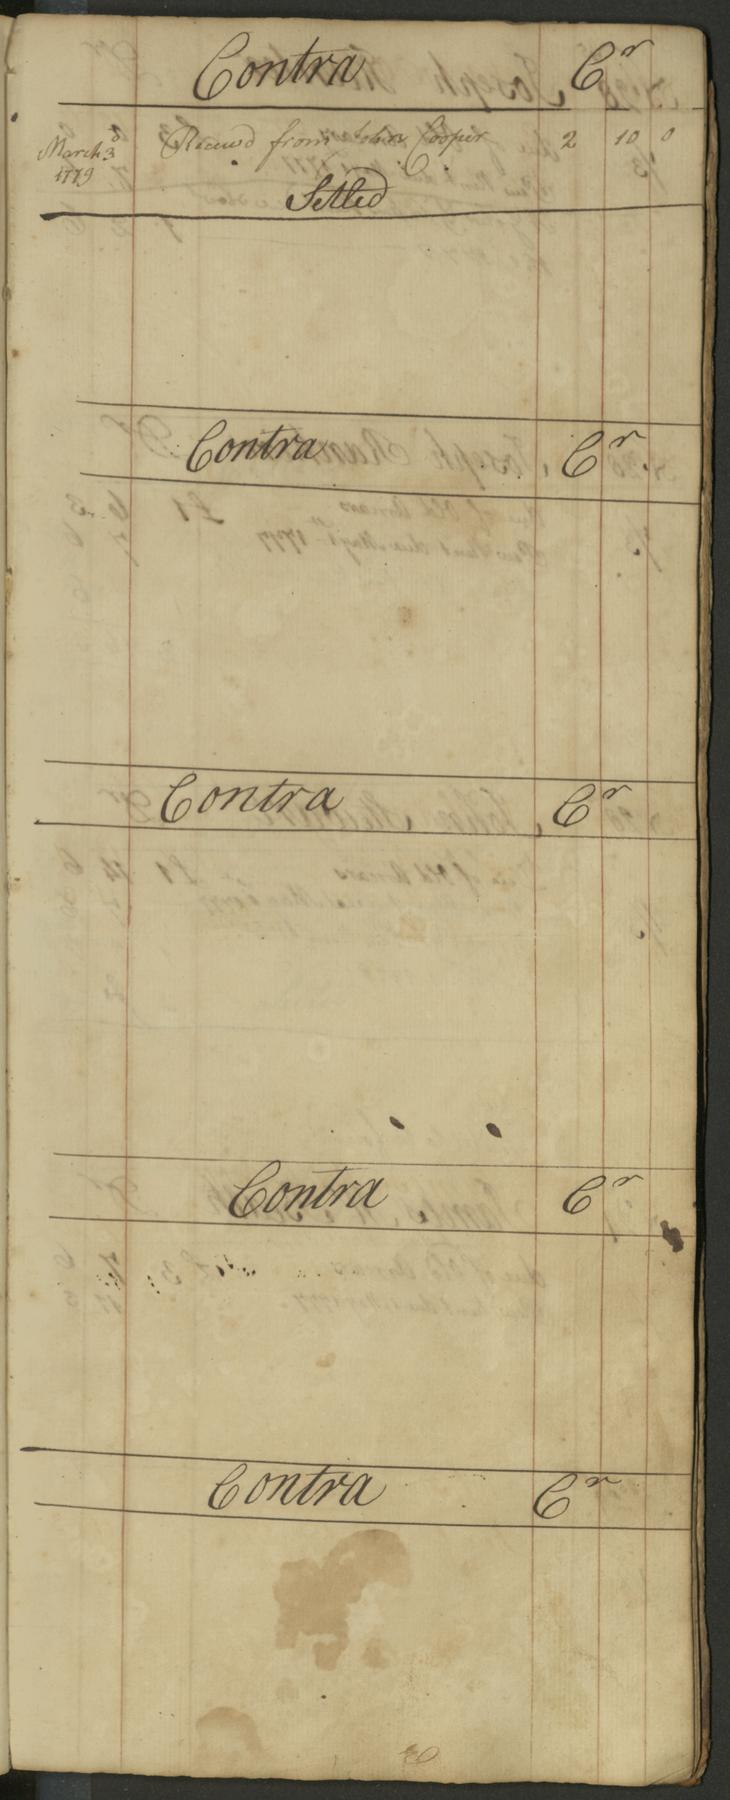 Contra Cr
March 3d Receivd from John Cooper 2 10 0
1779
Setled
Contra Cr
Contra Cr
Contra Cr
Contra Cr